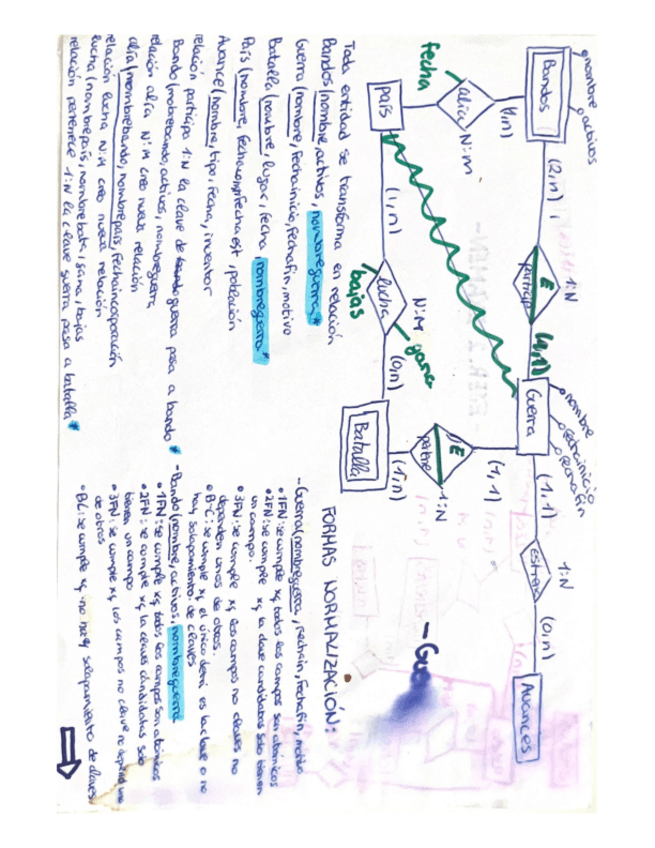 nombre
activos
Bandos
(1,n)
alía
N:M
fecha
País
(2,n)
1:N
E
particip
(1,1)
Guerra
nombre
fechainicio
fechafin
(1,1)
1:N
estrena
(0,n)
Avances
(1,1)
E
1:N
(1,n)
Batalla
(1,n)
lucha
N:M
(0,n)
bajas
gana
Toda entidad se transforma en relación
Bandos (nombre, activos, nombreguerra*
Guerra (nombre, fechainicio, fechafin, motivo
Batalla (nombre, lugar, fecha, nombreguerra*
País (nombre, fechaest, población
Avance (nombre, tipo, fecha, inventor
relación participa 1:N la clave de guerra pasa a bando *
Bando (nombrebando, activos, nombreguerra
relación alía N:M creo nueva relación
alía (nombrebando, nombrepaís, fechaincorporación
relación lucha N:M creo nueva relación
lucha (nombrepaís, nombrebata, gana, bajas
relación pertenece 1:N la clave guerra pasa a batalla *
- Gue
FORMAS NORMALIZACIÓN:
- Guerra (nombreguerra, fechain, fechafin, motivo
• 1FN: se cumple xq todos los campos son atómicos
• 2FN: se cumple xq la clave candidata solo tienen
un campo.
• 3FN: se cumple xq los campos no claves no
dependen unos de otros.
• B-C: se cumple xq el único detri es la clave o no
hay solapamiento de claves
- Bando (nombre, activos, nombreguerra
• 1FN: se cumple xq todos los campos son atómicos
• 2FN: se cumple xq la claves candidatas solo
tienen un campo
• 3FN: se cumple xq los campos no clave no depend uno
de otros
• BC: se cumple xq no hay solapamiento de claves